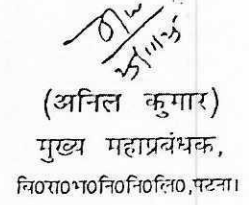 (अनिल कुमार)
मुख्य महाप्रबंधक,
बि०रा०भ०नि०नि०लि०,पटना।